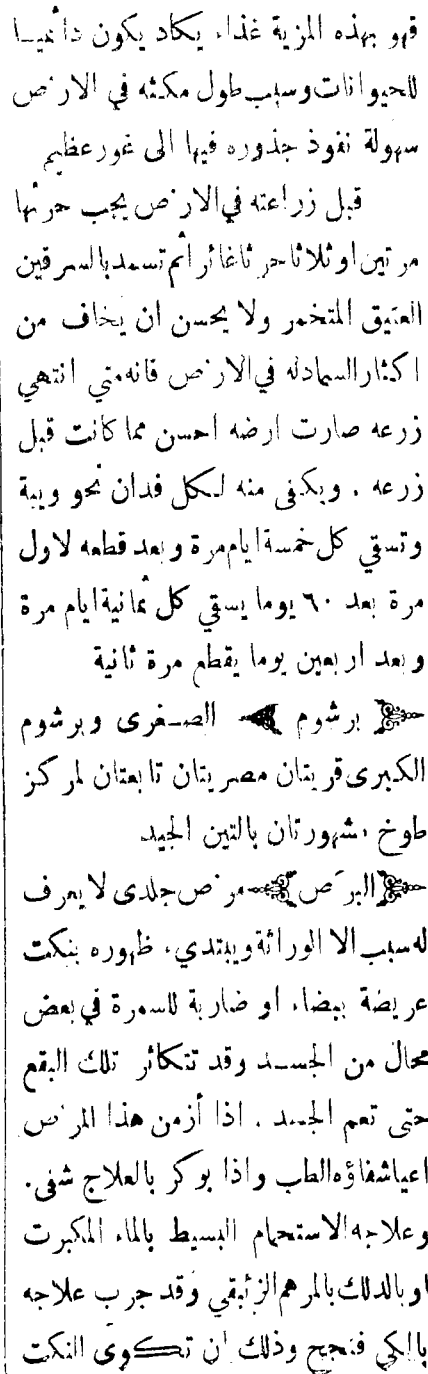 فهو بهذه المزية غذاء يكاد يكون دائميا
للحيوانات وسبب طول مكثه في الارض
سهولة نفوذ جذوره فيها الى غور عظيم
قبل زراعته في الارض يجب حرثها
مرتين او ثلاثا حرثا غائرا ثم تسمد بالسرقين
العتيق المتخمر ولا يحسن ان يخاف من
اكثار السماد له في الارض فانه متي انتهي
زرعه صارت ارضه احسن مما كانت قبل
زرعه . ويكفى منه لكل فدان نحو ويبة
وتسقي كل خمسة ايام مرة وبعد قطعه لاول
مرة بعد ٦٠ يوما يسقي كل ثمانية ايام مرة
وبعد اربعين يوما يقطع مرة ثانية
برشوم الصغرى وبرشوم
الكبرى قريتان مصريتان تابعتان لمركز
طوخ مشهورتان بالتين الجيد
البرَص مرض جلدى لا يعرف
له سبب الا الوراثة ويبتدي ء ظهوره بنكت
عريضة بيضاء او ضاربة للسمرة في بعض
محال من الجسد وقد تتكاثر تلك البقع
حتى تعم الجسد . اذا أزمن هذا المرض
اعيا شفاؤه الطب واذا بوكر بالعلاج شفى .
وعلاجه الاستحمام البسيط بالماء المكبرت
او بالدلك بالمرهم الزئبقي وقد جرب علاجه
بالكي فنجح وذلك ان تكوى النكت